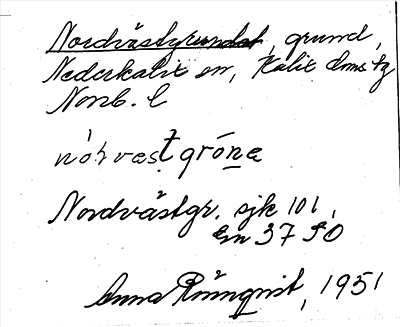 Nordvästgrundet, grund,
Nederkalix sn, Kalix doms. tg
Norrb. l
nórvæst gróna
Nordvästgr. sjk 101,
En 37 SO
Anna Rönnqvist, 1951